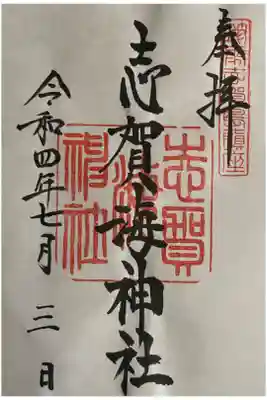 奉拝
志賀海神社
令和四年七月三日
志賀海神社